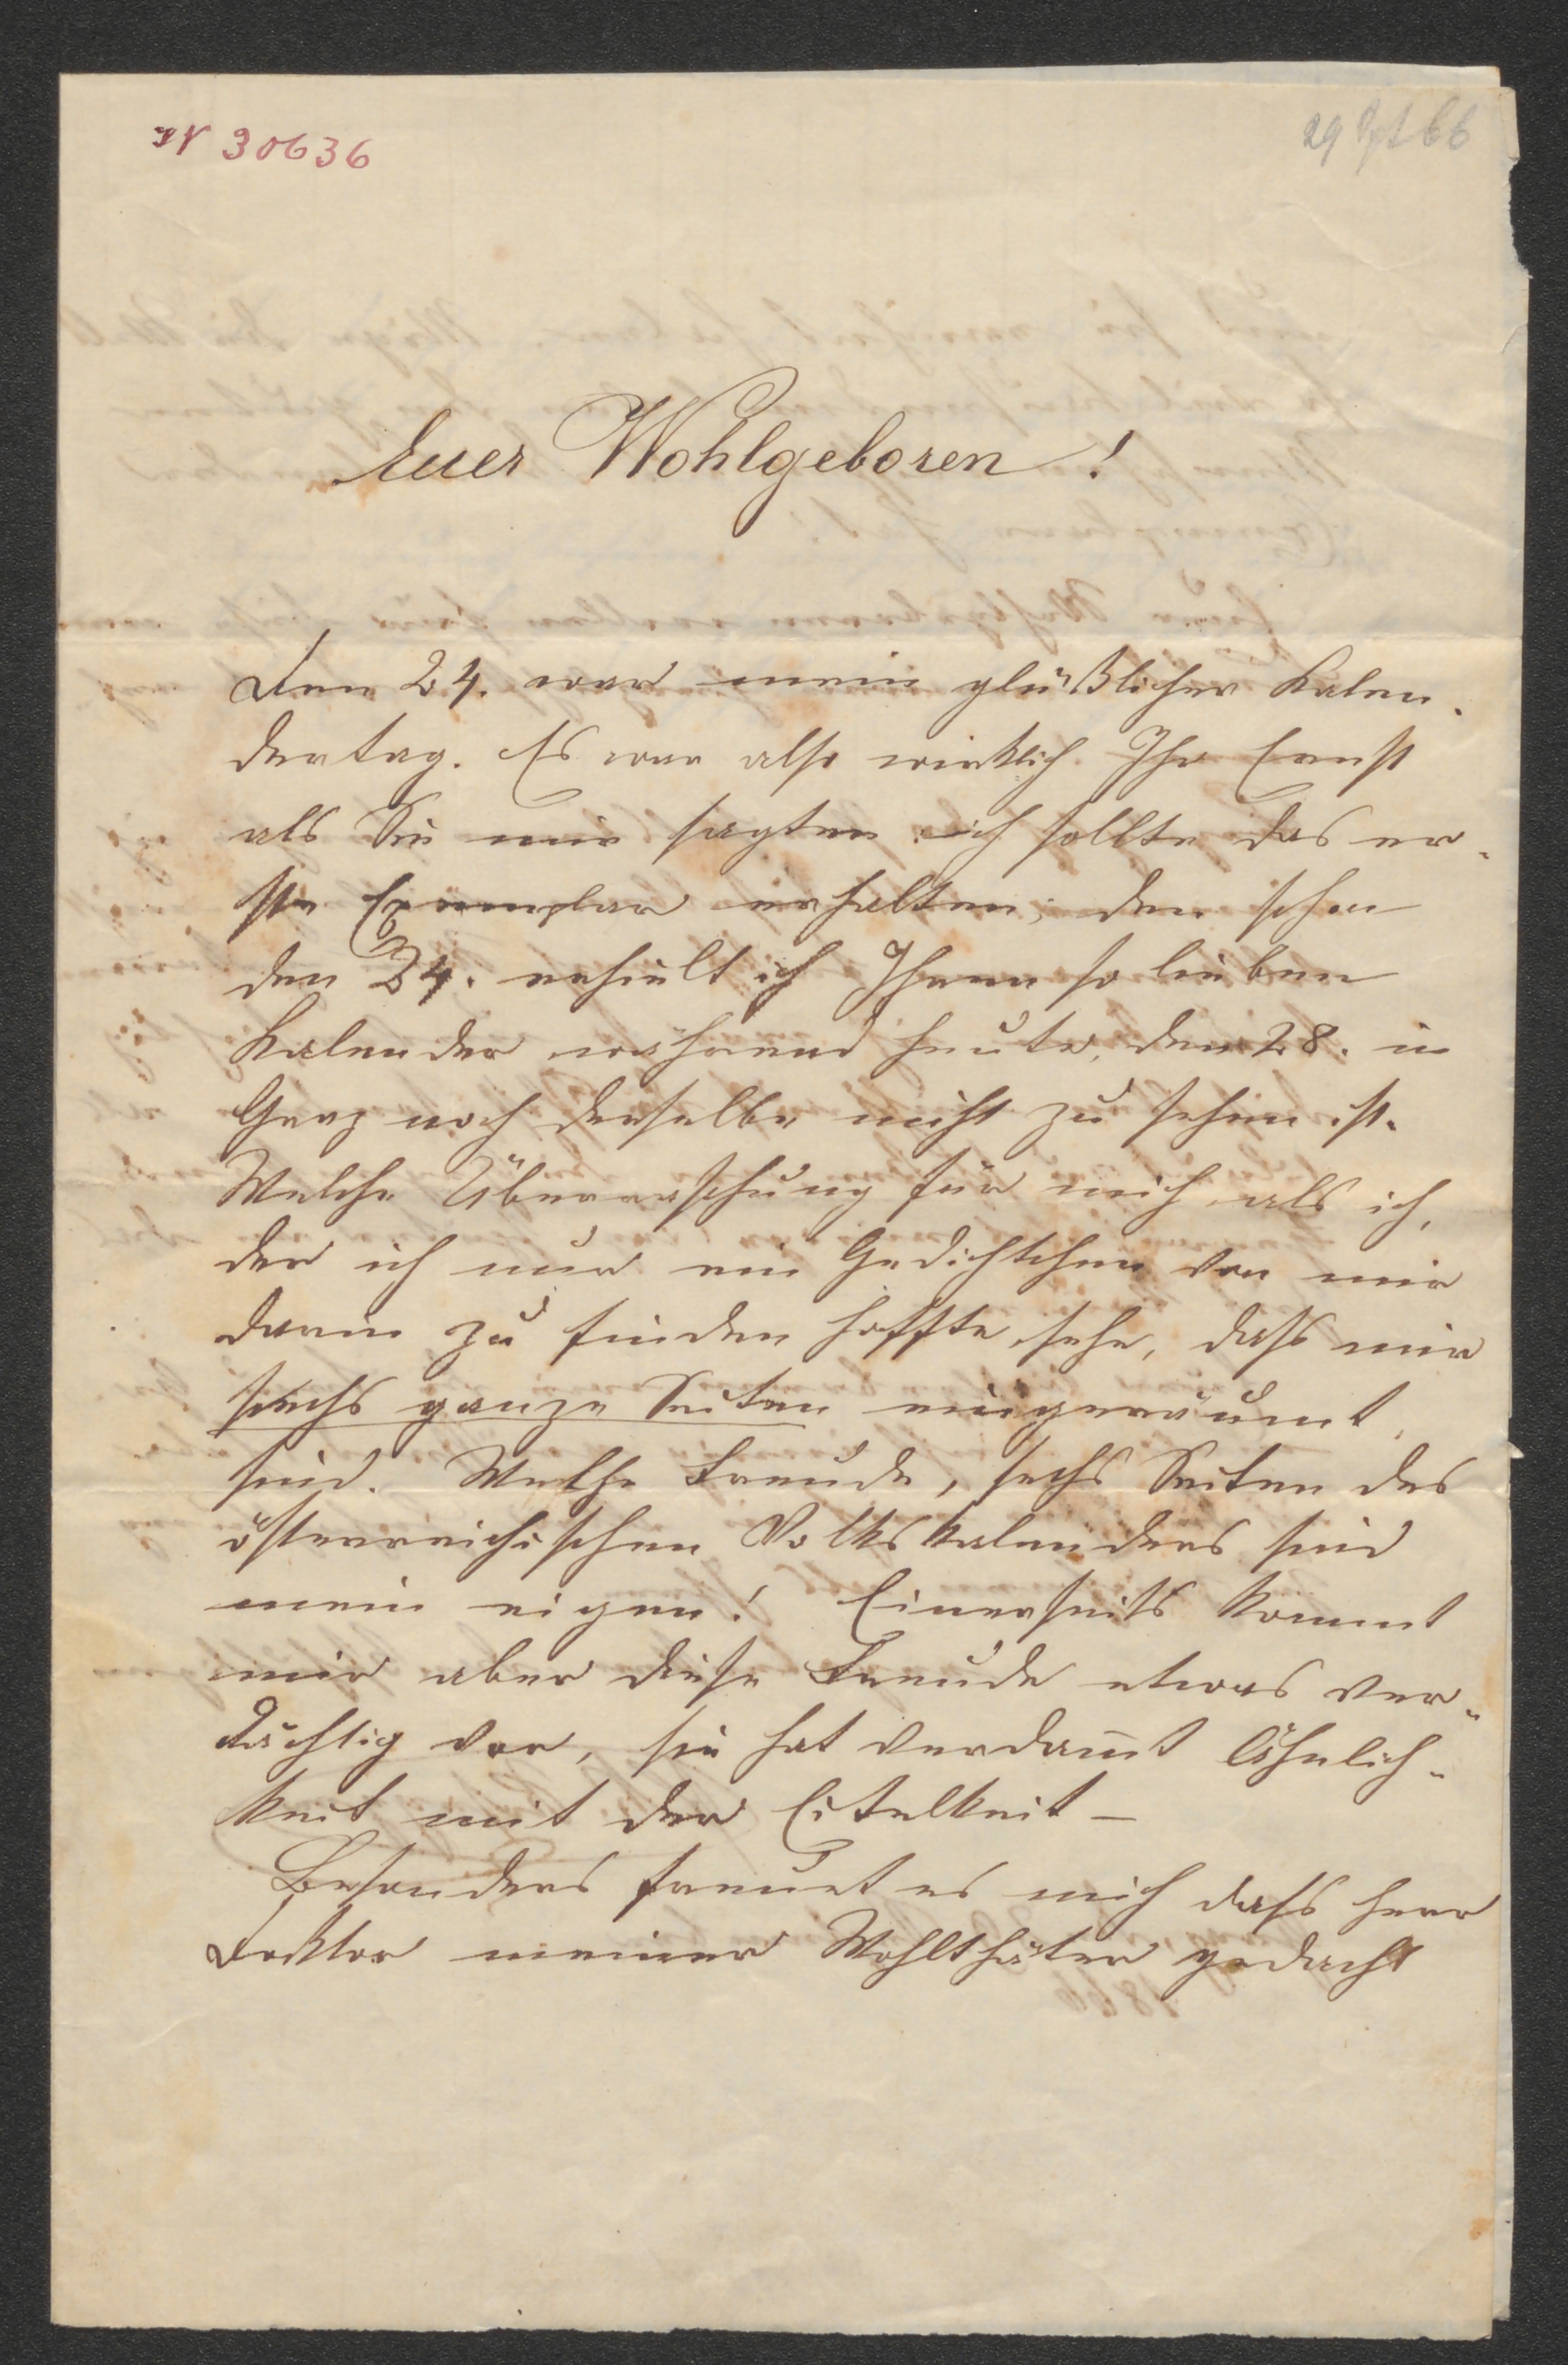 IN 30636
29 Spt 66
Euer Wohlgeboren!
Den 24. war mein glücklicher Kalen-
dertag. Es war also wirklich Ihr Ernst
als Sie mir sagten ich sollte das er-
ste Exemplar erhalten; den schon
den 24. erhielt ich Ihren so lieben
Kalender während heute, den 28. in
Graz noch derselbe nicht zu sehen ist.
Welche Überraschung für mich als ich,
der ich nur ein Gedichtchen von mir
darin zu finden hoffte, sehe, dass mir
sechs ganze Seiten eingeräumt
sind. Welche Freude, sechs Seiten des
österreichischen Volkskalenders sind
mein eigen! Einerseits kommt
mir aber diese Freude etwas ver-
dächtig vor, sie hat verdam̄t Ähnlich-
keit mit der Eitelkeit –
Besonders freuet es mich dass Herr
Doktor meiner Wohlthäter gedacht